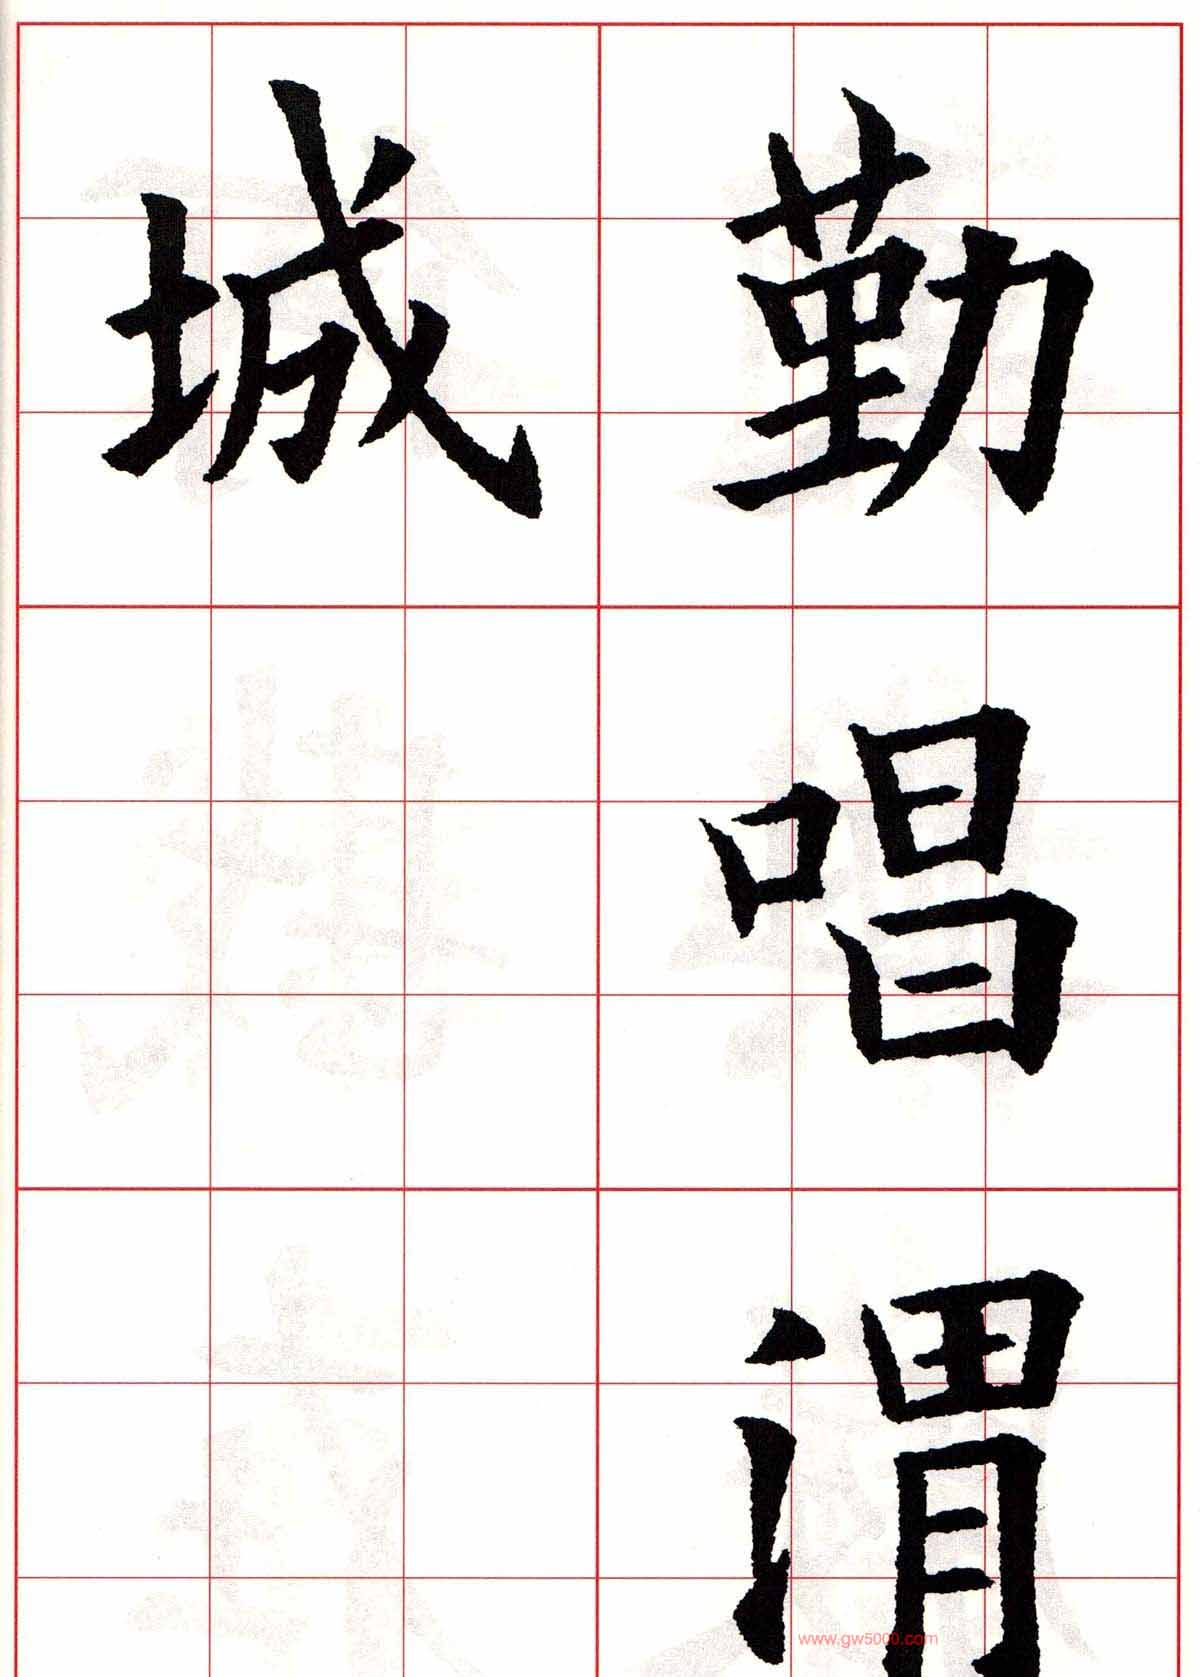 勤唱渭
城
www.gw5000.com